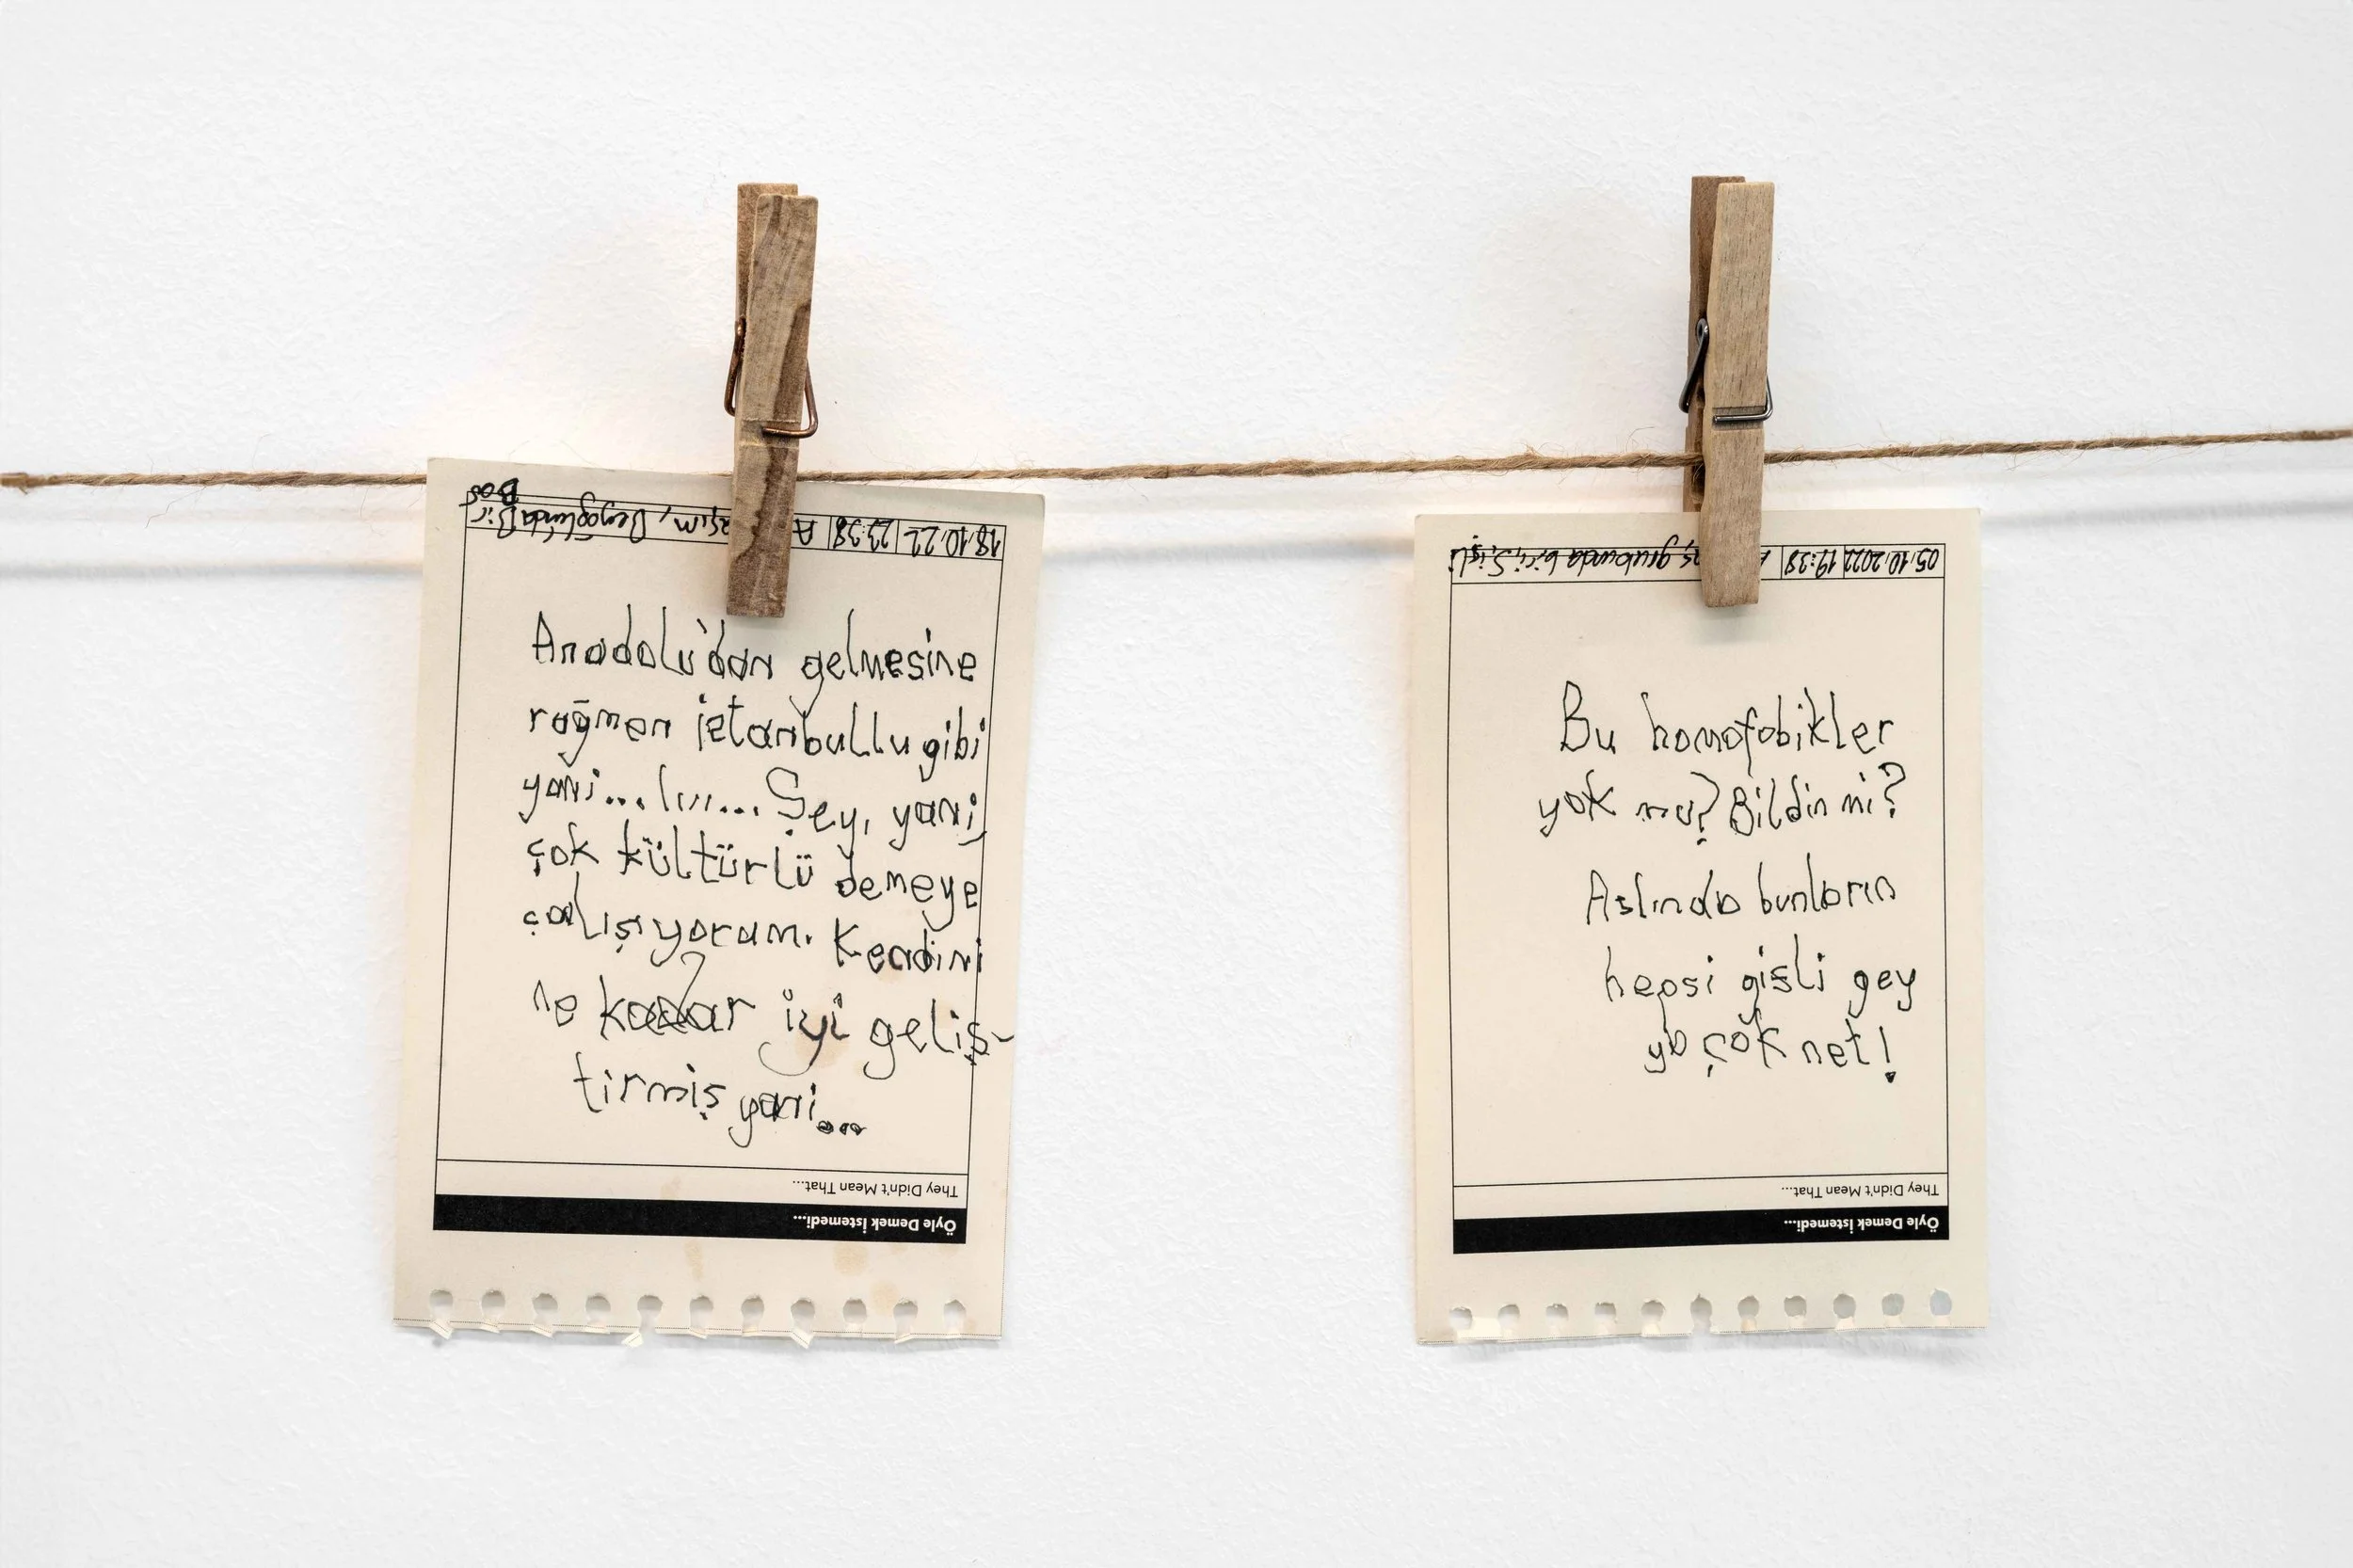 18.10.22 23:38 A
Beyoğlunda Bir
Anadolu'dan gelmesine
rağmen istanbullu gibi
yani... Iııı... Şey, yani,
çok kültürlü demeye
çalışıyorum. Kendini
ne kadar iyi geliş-
tirmiş yani...
They Didn't Mean That...
Öyle Demek İstemedi...
05.10.2022 19:38
grubunda biri, Şişli
Bu homofobikler
yok mu? Bildin mi?
Aslında bunların
hepsi gisli gey
ya çok net!
They Didn't Mean That...
Öyle Demek İstemedi...